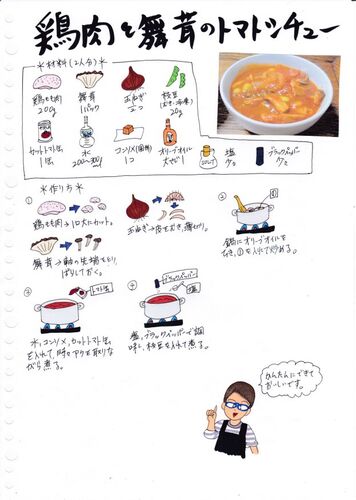 鶏肉と舞茸のトマトシチュー
*材料(2人分)*
鶏もも肉
200g
舞茸
1パック
玉ねぎ
1/2コ
枝豆
(むき、冷凍)
20g
カットトマト缶
1缶
水
200〜300ml
コンソメ(固形)
1コ
オリーブオイル
大さじ1
塩
少々
ブラックペッパー
少々
*作り方*
①
鶏もも肉→1口大にカット。
舞茸→軸の先端をとり、
ばらしておく。
玉ねぎ→皮をむき、薄切り。
②
鍋にオリーブオイルを
ひき、①を入れて炒める。
③
トマト缶
水、コンソメ、カットトマト缶
を入れて、時々アクを取りな
がら煮る。
④
ブラックペッパー
塩
塩、ブラックペッパーで調
味し、枝豆を入れて煮る。
かんたんにできて
おいしいです。